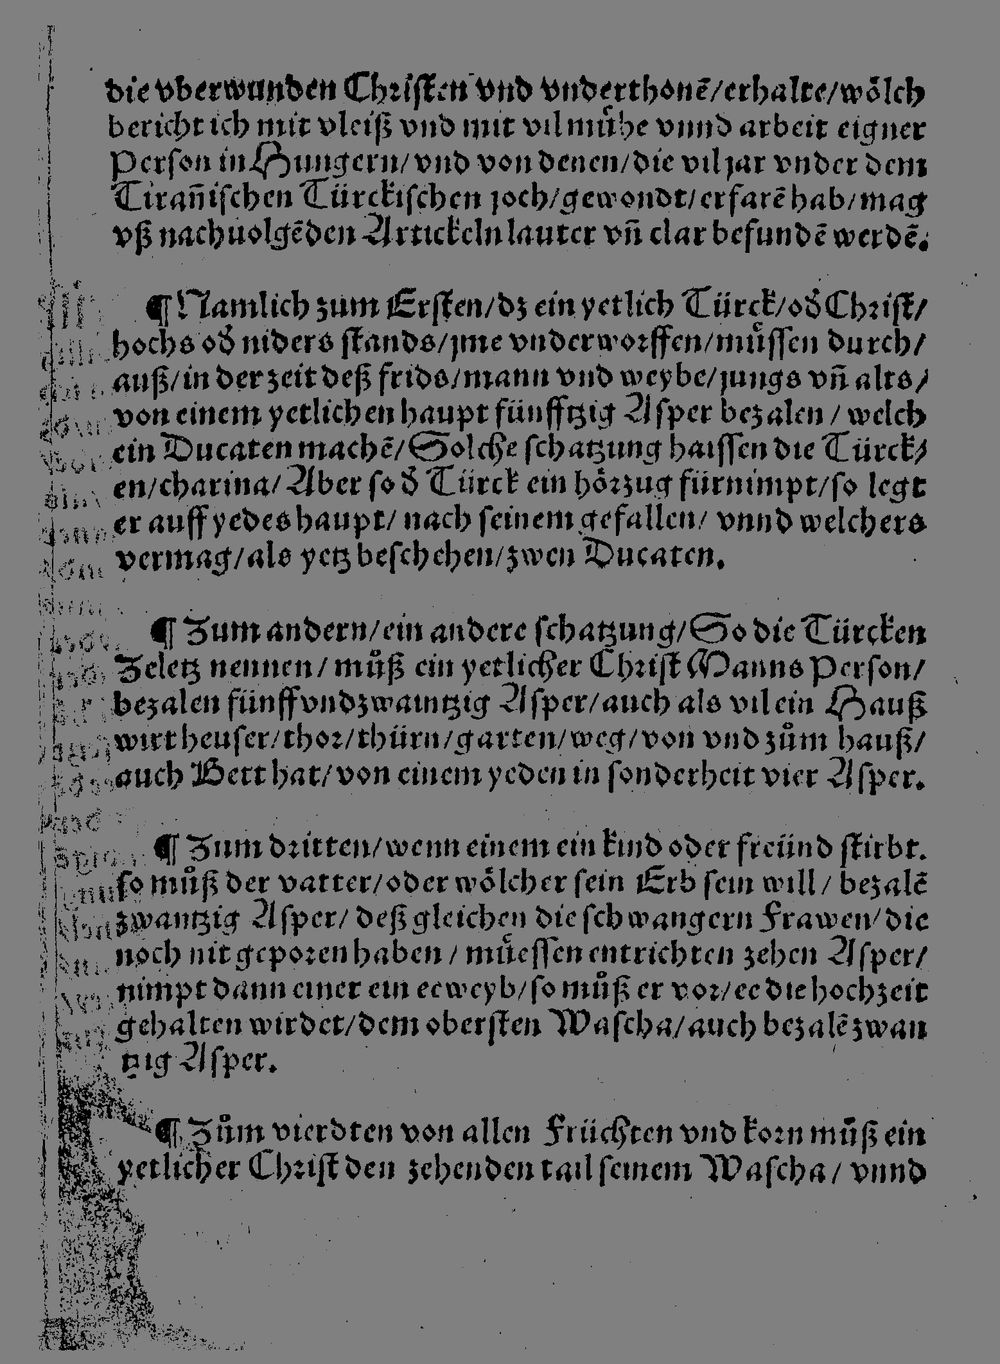 die vberwunden Christen vnd vnderthonẽ/erhalte/woͤlch
bericht ich mit vleiß vnd mit vil muͤhe vnnd arbeit eigner
Person in Hungern/ vnd von denen/die vil jar vnder dem
Tirañischen Türckischen joch/gewondt/erfarẽ hab/mag
vß nachuolgẽden Artickeln lauter vñ clar befundẽ werdẽ.
¶ Namlich zum Ersten/dz ein yetlich Türck/oð Christ/
hochs oð niders stands/jme vnderworffen/muͤssen durch/
auß/in der zeit deß frids/mann vnd weybe/jungs vñ alts/
von einem yetlichen haupt fünfftzig Asper bezalen/ welch
ein Ducaten machẽ/Solche schatzung haissen die Türck/
en/charina/Aber so ð Türck ein hoͤrzug fürnimpt/so legt
er auff yedes haupt/ nach seinem gefallen/ vnnd welchers
vermag/als yetz beschehen/zwen Ducaten.
¶ Zum andern/ein andere schatzung/So die Türcken
Zeletz nennen/ muͦß ein yetlicher Christ Manns Person/
bezalen fünffvndzwaintzig Asper/auch als vil ein Hauß
wirt heuser/thor/thürn/garten/weg/von vnd zuͦm hauß/
auch Bett hat/von einem yeden in sonderheit vier Asper.
¶ Zum dritten/wenn einem ein kind oder freünd stirbt.
so muͦß der vatter/oder woͤlcher sein Erb sein will/ bezalẽ
zwantzig Asper/ deß gleichen die schwangern Frawen/die
noch nit geporen haben/ muͤessen entrichten zehen Asper/
nimpt dann einer ein eeweyb/so muͦß er vor/ee die hochzeit
gehalten wirdet/dem obersten Wascha/auch bezalẽ zwan
tzig Asper.
¶ Zuͦm vierdten von allen Früchten vnd korn muͦß ein
yetlicher Christ den zehenden tail seinem Wascha/ vnnd